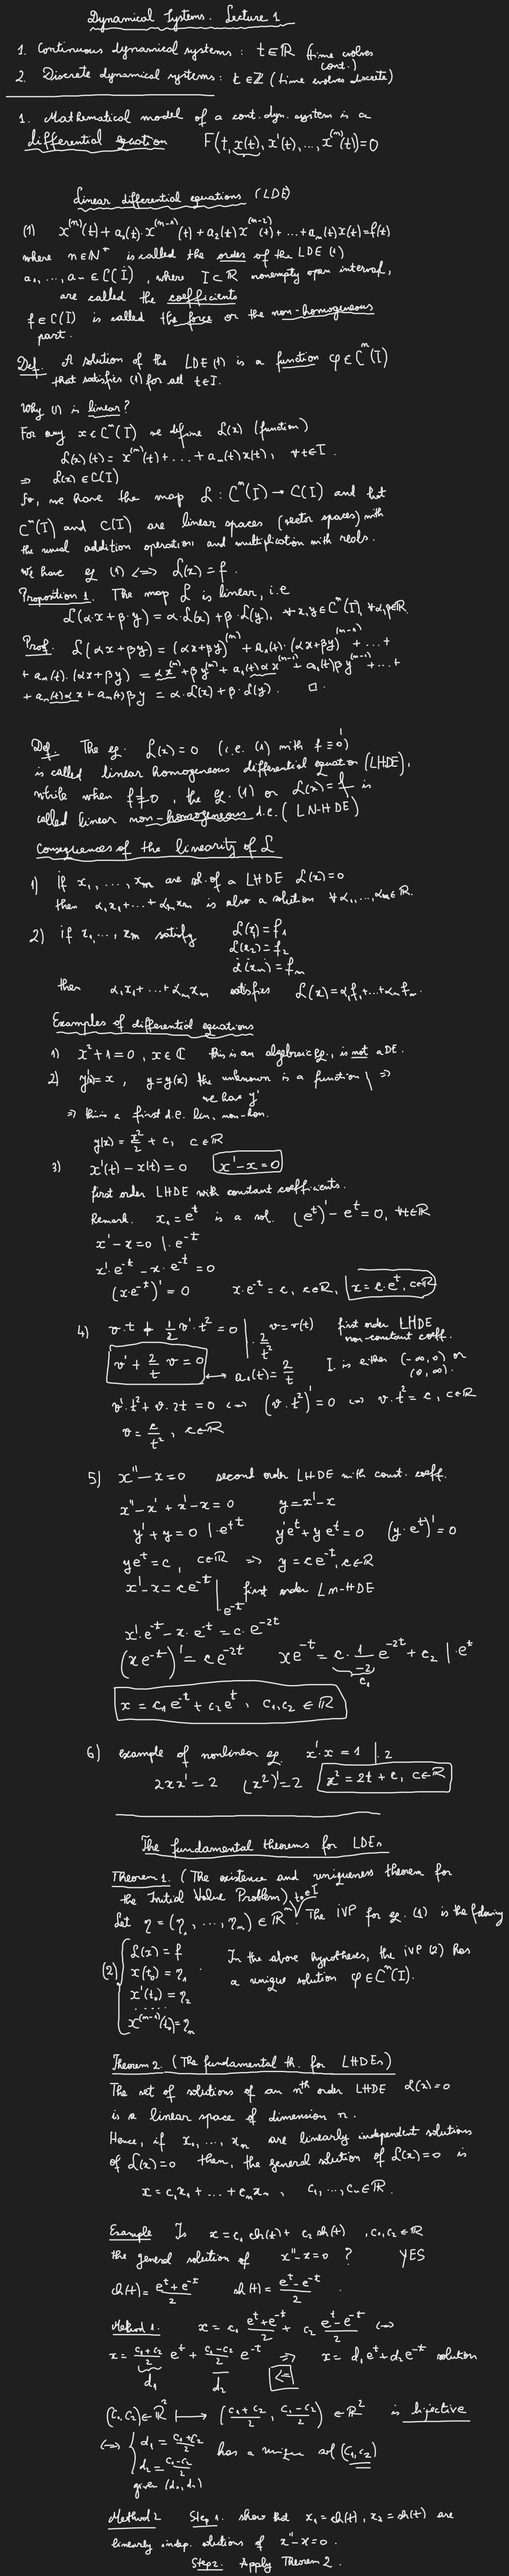 Dynamical Systems. Lecture 1
1. Continuous dynamical systems : t∈ℝ (time evolves cont.)
2. Discrete dynamical systems : t∈ℤ (time evolves discrete)
1. Mathematical model of a cont. dyn. system is a
differential equation F(t, x(t), x'(t), ..., x^(n)(t))=0
Linear differential equations (LDE)
(1) x^(n)(t) + a₁(t)·x^(n-1)(t) + a₂(t) x^(n-2)(t) + ... + aₙ(t)x(t)=f(t)
where n∈ℕ* is called the order of the LDE (1)
a₁, ..., aₙ ∈ C(I), where I⊂ℝ nonempty open interval,
are called the coefficients
f∈C(I) is called the force or the non-homogeneous
part.
Def. A solution of the LDE (1) is a function φ∈Cⁿ(I)
that satisfies (1) for all t∈I.
Why (1) is linear?
For any x∈Cⁿ(I) we define ℒ(x) (function)
ℒ(x)(t) = x^(n)(t) + ... + aₙ(t)x(t), ∀t∈I.
⇒ ℒ(x)∈C(I)
So, we have the map ℒ : Cⁿ(I) → C(I) and that
Cⁿ(I) and C(I) are linear spaces (vector spaces) with
the usual addition operation and multiplication with reals.
We have eq (1) <=> ℒ(x) = f.
Proposition 1. The map ℒ is linear, i.e
ℒ(α·x+β·y) = α·ℒ(x)+β·ℒ(y), ∀x,y∈Cⁿ(I), ∀α,β∈ℝ.
Proof. ℒ(αx+βy) = (αx+βy)^(n) + a₁(t)·(αx+βy)^(n-1) + ... +
+ aₙ(t)·(αx+βy) = αx^(n)+βy^(n)+a₁(t)αx^(n-1) + a₁(t)βy^(n-1)+...+
+ aₙ(t)αx + aₙ(t)βy = α·ℒ(x)+β·ℒ(y). □.
Def. The eq. ℒ(x)=0 (i.e. (1) with f≡0)
is called linear homogeneous differential equation (LHDE),
while when f≠0, the eq. (1) or ℒ(x)=f is
called linear non-homogeneous d.e. (LN-HDE)
Consequences of the linearity of ℒ
1) if x₁, ..., xₘ are sol. of a LHDE ℒ(x)=0
then α₁x₁+...+αₘxₘ is also a solution ∀α₁,...,αₘ∈ℝ.
2) if x₁,..., xₘ satisfy ℒ(x₁)=f₁
ℒ(x₂)=f₂
ℒ(xₘ)=fₘ
then α₁x₁+...+αₘxₘ satisfies ℒ(x)=α₁f₁+...+αₘfₘ.
Examples of differential equations
1) x²+1=0, x∈ℂ this is an algebraic eq., is not a DE.
2) y'(x)=x, y=y(x) the unknown is a function | ⇒
we have y'
⇒ this is a first d.e. lin. non-hom.
y(x) = x²/2 + c, c∈ℝ
3) x'(t)-x(t)=0 x'-x=0
first order LHDE with constant coefficients.
Remark. x₁=e^t is a sol. (e^t)'-e^t=0, ∀t∈ℝ
x'-x=0 |·e^-t
x'·e^-t - x·e^-t = 0
(x·e^-t)' = 0 x·e^-t = c, c∈ℝ, x=c·e^t, c∈ℝ
4) v·t + 1/2 v'·t² = 0 |·2/t² v=v(t) first order LHDE
non-constant coeff.
v' + 2/t v = 0 ↔ a₁(t)=2/t I is either (-∞,0) or
(0,∞).
v'·t²+v·2t=0 <=> (v·t²)'=0 <=> v·t²=c, c∈ℝ
v=c/t², c∈ℝ
5) x''-x=0 second order LHDE with const. coeff.
x''-x'+x'-x=0 y=x'-x
y'+y=0 |·e^t y'e^t+ye^t=0 (y·e^t)'=0
ye^t=c, c∈ℝ ⇒ y=ce^-t, c∈ℝ
x'-x=ce^-t |·e^-t first order Ln-HDE
x'·e^-t - x·e^-t = c·e^-2t
(xe^-t)' = ce^-2t xe^-t = c·1/-2 e^-2t + c₂ |·e^t
c₁
x = c₁e^-t + c₂e^t, c₁,c₂∈ℝ
6) example of nonlinear eq. x'·x=1 |·2
2xx'=2 (x²)'=2 x²=2t+c, c∈ℝ
The fundamental theorems for LDEs
Theorem 1. (The existence and uniqueness theorem for
the Initial Value Problem) t₀∈I
Let η=(η₁,...,ηₙ)∈ℝⁿ. The IVP for eq. (1) is the following
(2) { ℒ(x)=f In the above hypotheses, the IVP (2) has
x(t₀)=η₁ a unique solution φ∈Cⁿ(I).
x'(t₀)=η₂
.....
x^(n-1)(t₀)=ηₙ
Theorem 2. (The fundamental th. for LHDEs)
The set of solutions of an n^th order LHDE ℒ(x)=0
is a linear space of dimension n.
Hence, if x₁,...,xₙ are linearly independent solutions
of ℒ(x)=0 then, the general solution of ℒ(x)=0 is
x=c₁x₁+...+cₙxₙ, c₁,...,cₙ∈ℝ.
Example Is x=c₁ch(t)+c₂sh(t), c₁,c₂∈ℝ
the general solution of x''-x=0 ? YES
ch(t)=(e^t+e^-t)/2 sh(t)=(e^t-e^-t)/2.
Method 1. x=c₁ (e^t+e^-t)/2 + c₂ (e^t-e^-t)/2 <=>
x=(c₁+c₂)/2 e^t + (c₁-c₂)/2 e^-t ⇒ x=d₁e^t+d₂e^-t solution
d₁ d₂ <=
(c₁,c₂)∈ℝ² ↦ ((c₁+c₂)/2, (c₁-c₂)/2) ∈ℝ² is bijective
<=> { d₁=(c₁+c₂)/2
d₂=(c₁-c₂)/2 has a unique sol (c₁,c₂)
given (d₁,d₂)
Method 2 Step 1. show that x₁=ch(t), x₂=sh(t) are
linearly indep. solutions of x''-x=0.
Step 2. Apply Theorem 2.